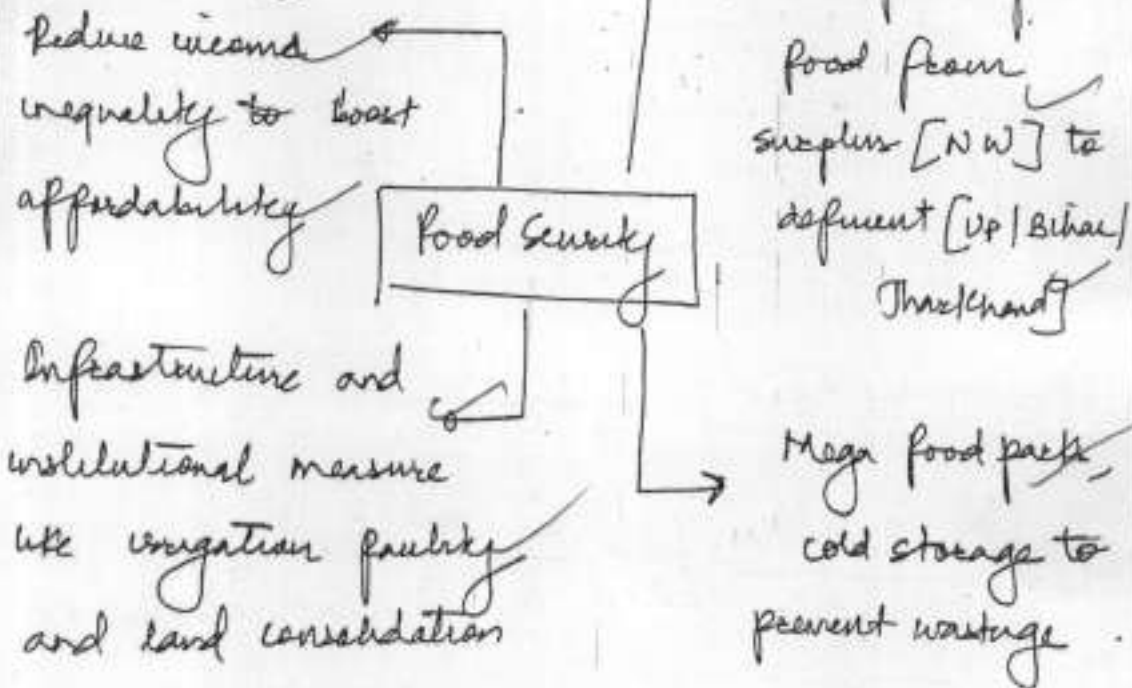 Reduce income
inequality to boost
affordability
food from
surplus [NW] to
deficient [UP/Bihar/
Jharkhand]
Food Security
Infrastructure and
institutional measure
like irrigation facility
and land consolidation
Mega food park,
cold storage to
prevent wastage.